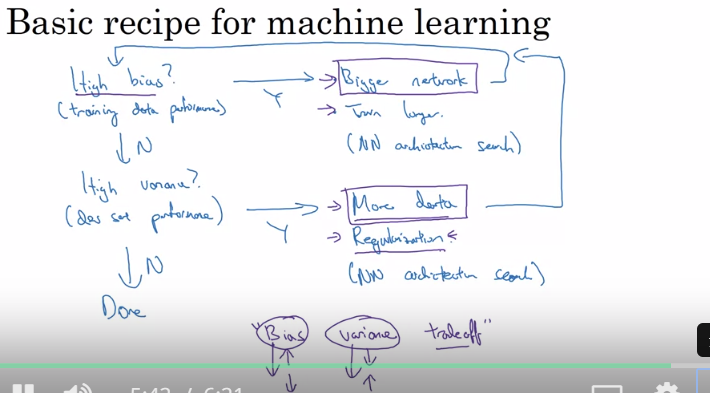 Basic recipe for machine learning
High bias?
(training data performance)
Y
Bigger network
Train longer.
(NN architecture search)
N
High variance?
(dev set performance)
Y
More data
Regularization
(NN architecture search)
N
Done
"Bias variance tradeoff"
5:42 / 6:21